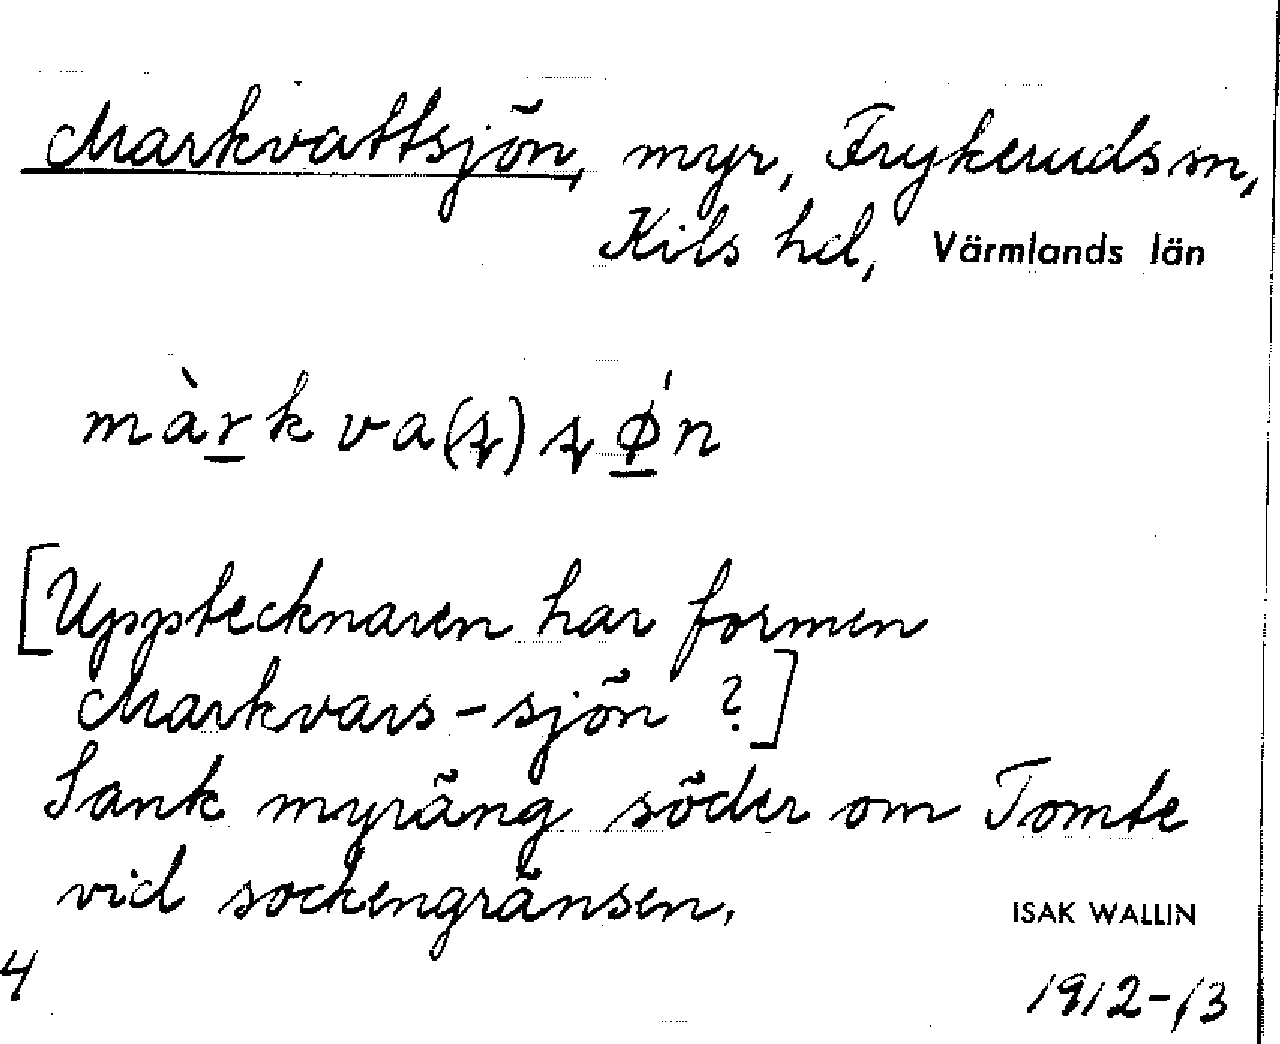 Markvattsjön, myr, Frykerudssn,
Kils hd, Värmlands län
màrkva(ʂ)ʂǿn
[Upptecknaren har formen
Markvars-sjön?]
Sank myräng söder om Tomte
vid sockengränsen.
ISAK WALLIN
4
1912-13